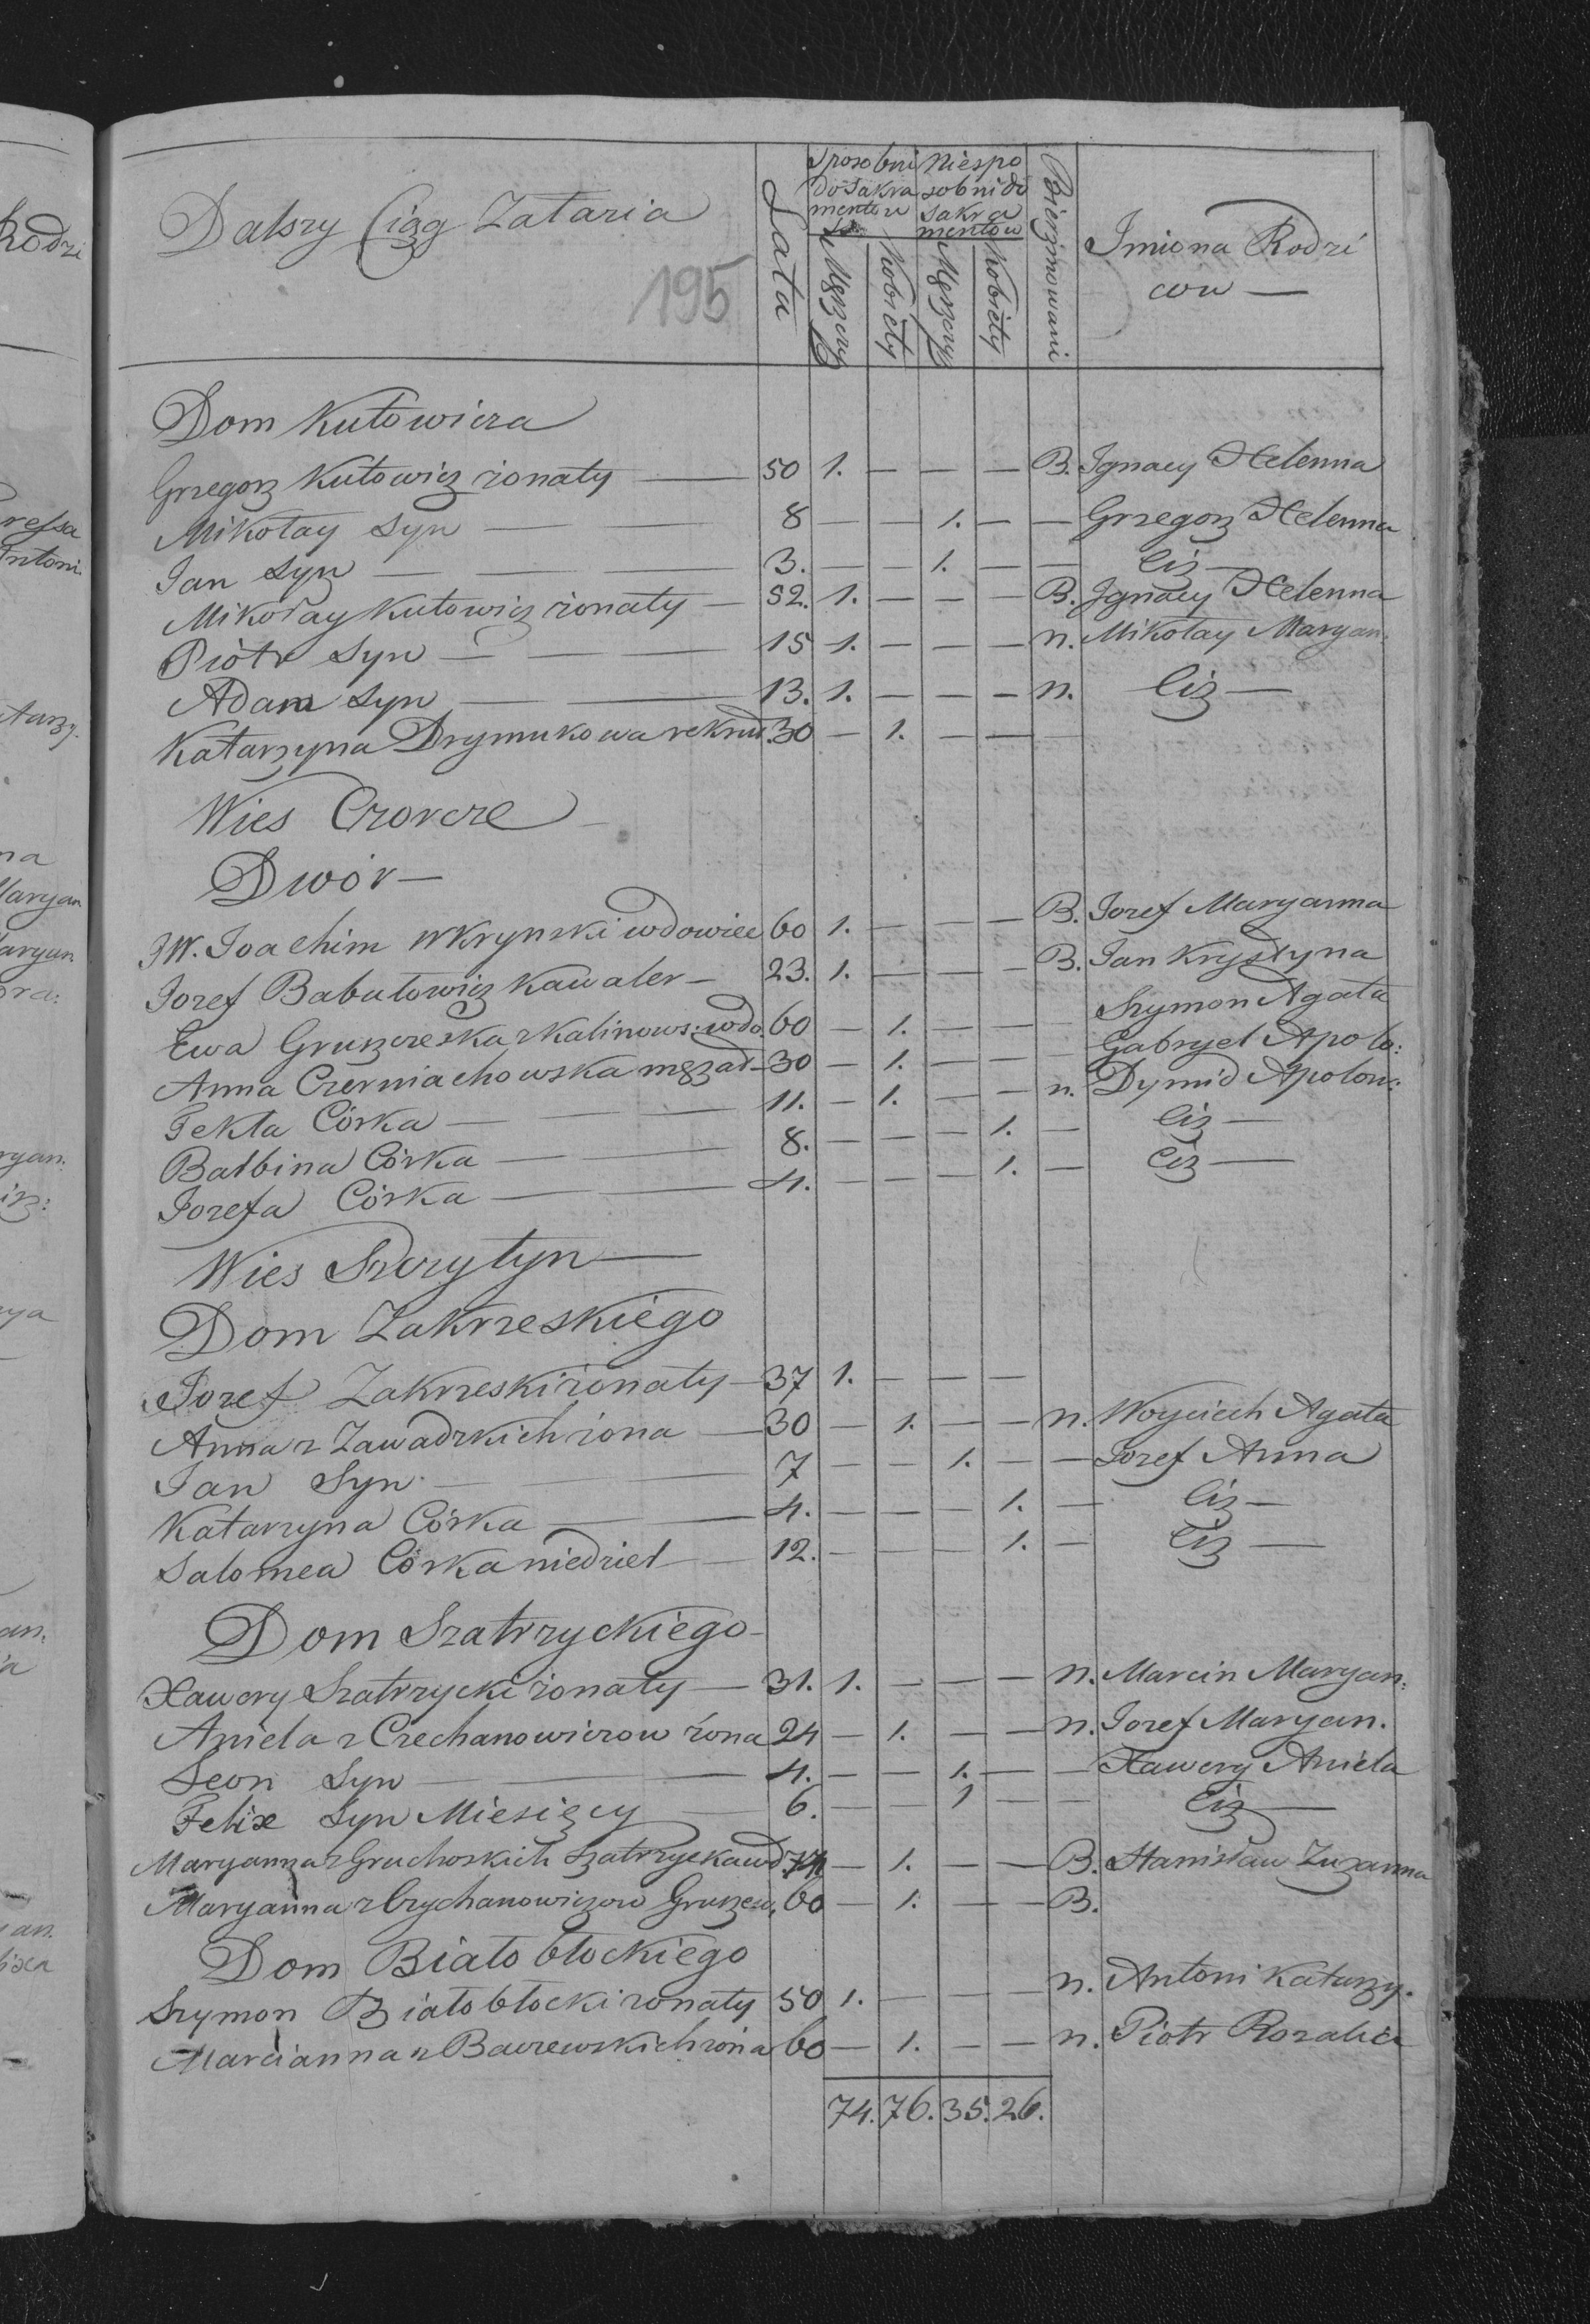 Dalszy Ciąg Zataria
195
Lata
Sposobni do Sakramentow
Niesposobni do Sakramentow
Męzczyz
Kobiety
Męzczyz
Kobiety
Bierzmowani
Imiona Rodzicow —
Dom Kutowicza
Grzegorz Kutowicz zonaty — 50 1. — — — B. Ignacy Helenna
Mikołay Syn — — 8 — — 1. — — Grzegorz Helenna
Jan Syn — — — 3. — — 1. — — Ciz —
Mikołay Kutowicz zonaty — 52. 1. — — — B. Ignacy Helenna
Piotr Syn — — — 15 1. — — — n. Mikołay Maryan.
Adam Syn — — 13. 1. — — — n. Ciz —
Katarzyna Drymukowa rekrut. 30 — 1. — — —
Wies Czovcze
Dwór —
JW. Joachim Wkrynski wdowiec 60 1. — — — B. Jozef Maryanna
Jozef Babutowicz Kawaler — 23. 1. — — — B. Jan Krystyna
Ewa Gruszczeska z Kalinows: wdo. 60 — 1. — — Szymon Agata
Anna Czerniachowska męzat — 30 — 1. — — — Gabryel Apolo:
Tekla Córka — — — 11. — 1. — — n. Dymid Apolon:
Balbina Córka — — 8. — — — 1. — Ciz —
Jozefa Córka — — 4. — — — 1. — Ciz —
Wies Szczytyn —
Dom Zakrzeskiego
Jozef Zakrzeski zonaty — 37 1. — — —
Anna z Zawadzkich zona — 30 — 1. — — n. Woyciech Agata
Jan Syn — — 7 — — 1. — — Jozef Anna
Katarzyna Córka — — 4. — — — 1. — Ciz —
Salomea Córka niedziel — 12. — — — 1. — Ciz —
Dom Szatrzyckiego —
Xawery Szatrzycki zonaty — 31. 1. — — — n. Marcin Maryan:
Aniela z Czechanowiczow żona 24 — 1. — — n. Jozef Maryan.
Leon Syn — — 4. — — 1. — — Xawery Aniela
Felix Syn Miesięcy — 6. — — 1 — — Ciz —
Maryanna z Gruchoskich Szatrzycka wd. 74 — 1. — — B. Stanisław Zuzanna
Maryanna z Czychanowiczow Gruszew. 60 — 1. — — B.
Dom Białobłockiego
Szymon Białobłocki zonaty 50 1. — — — n. Antoni Katarzy.
Marcianna z Baczewskich zona 60 — 1. — — n. Piotr Rozalia
74. 76. 35. 26.